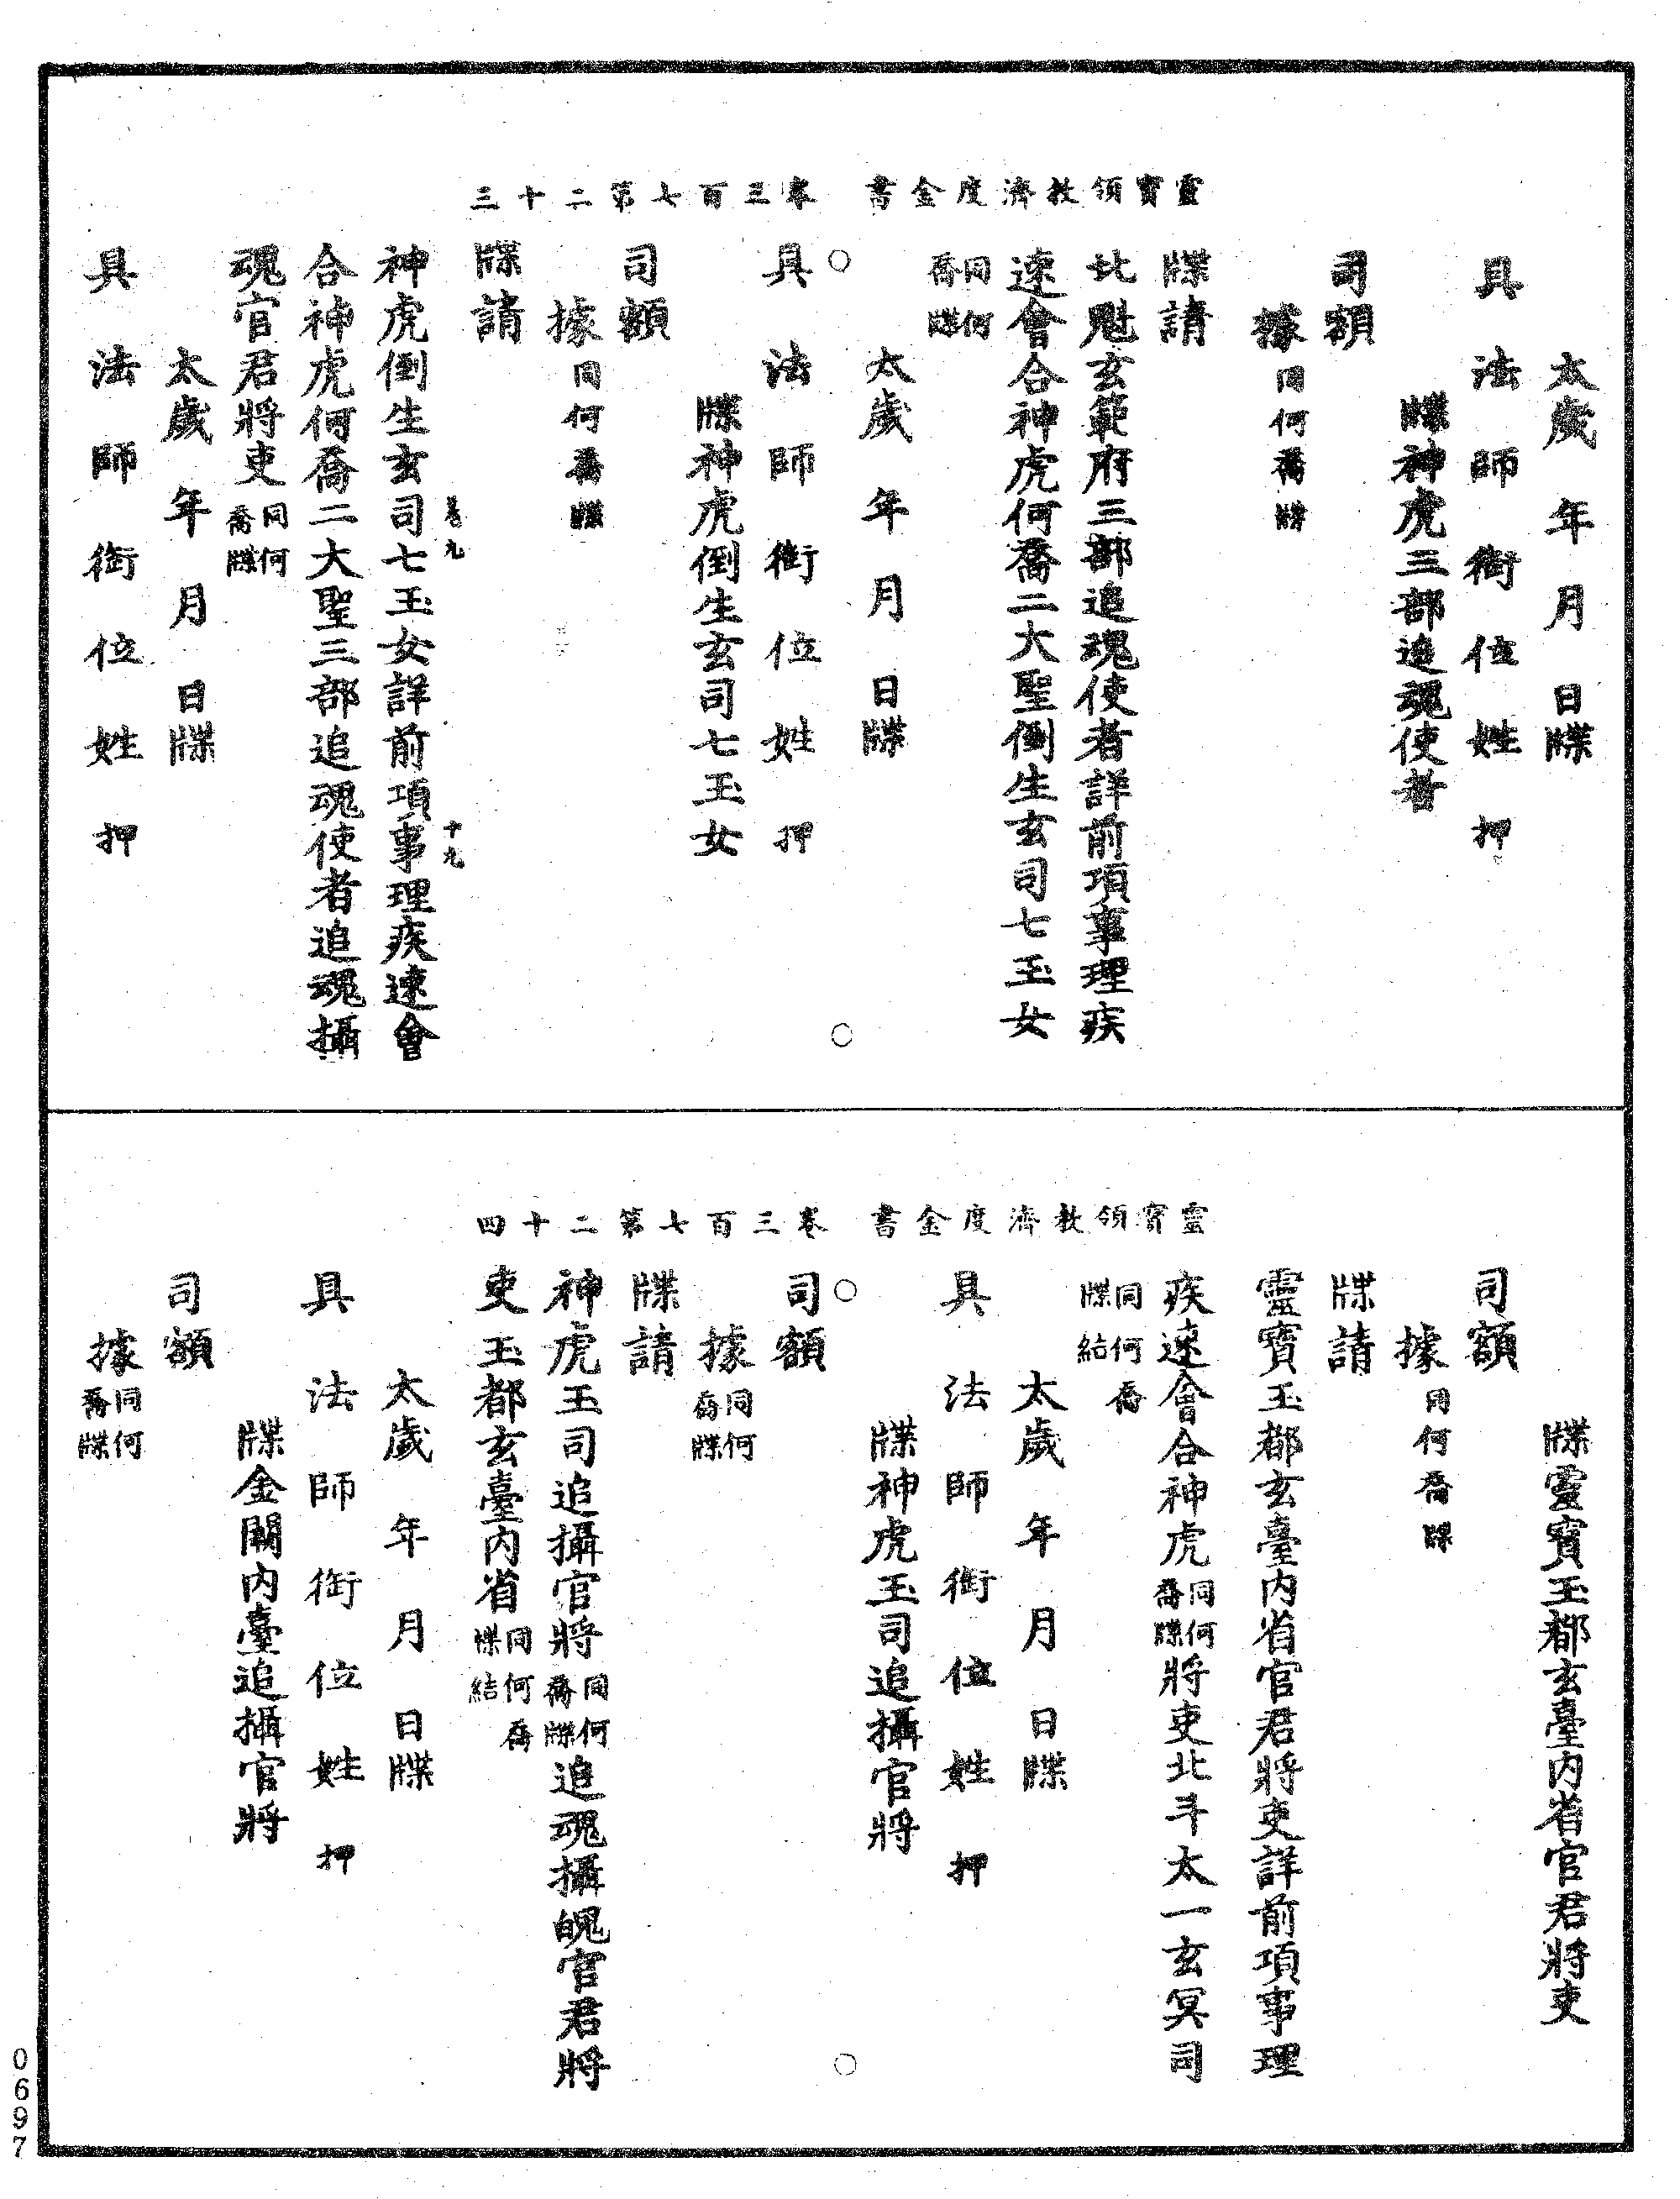 靈寶領教濟度金書　卷三百七第二十三
太歲　年　月　日牒
具法師銜位姓押
牒神虎三部追魂使者
司額
據同何喬牒
牒請
北魁玄範府三部追魂使者詳前項事理疾
速會合神虎何喬二大聖倒生玄司七玉女
同何喬牒
太歲　年　月　日牒
具法師銜位姓押
牒神虎倒生玄司七玉女
司額
據同何喬牒
牒請
卷九　十九
神虎倒生玄司七玉女詳前項事理疾速會
合神虎何喬二大聖三部追魂使者追魂攝
魂官君將吏同何喬牒
太歲　年　月　日牒
具法師銜位姓押
靈寶領教濟度金書　卷三百七第二十四
牒靈寶玉都玄臺內省官君將吏
司額
據同何喬牒
牒請
靈寶玉都玄臺內省官君將吏詳前項事理
疾速會合神虎同何喬牒將吏北斗太一玄冥司
同何喬牒結
太歲　年　月　日牒
具法師銜位姓押
牒神虎玉司追攝官將
司額
據同何喬牒
牒請
神虎玉司追攝官將同何喬牒追魂攝魄官君將
吏玉都玄臺內省同何喬牒結
太歲　年　月　日牒
具法師銜位姓押
牒金闕內臺追攝官將
司額
據同何喬牒
0697